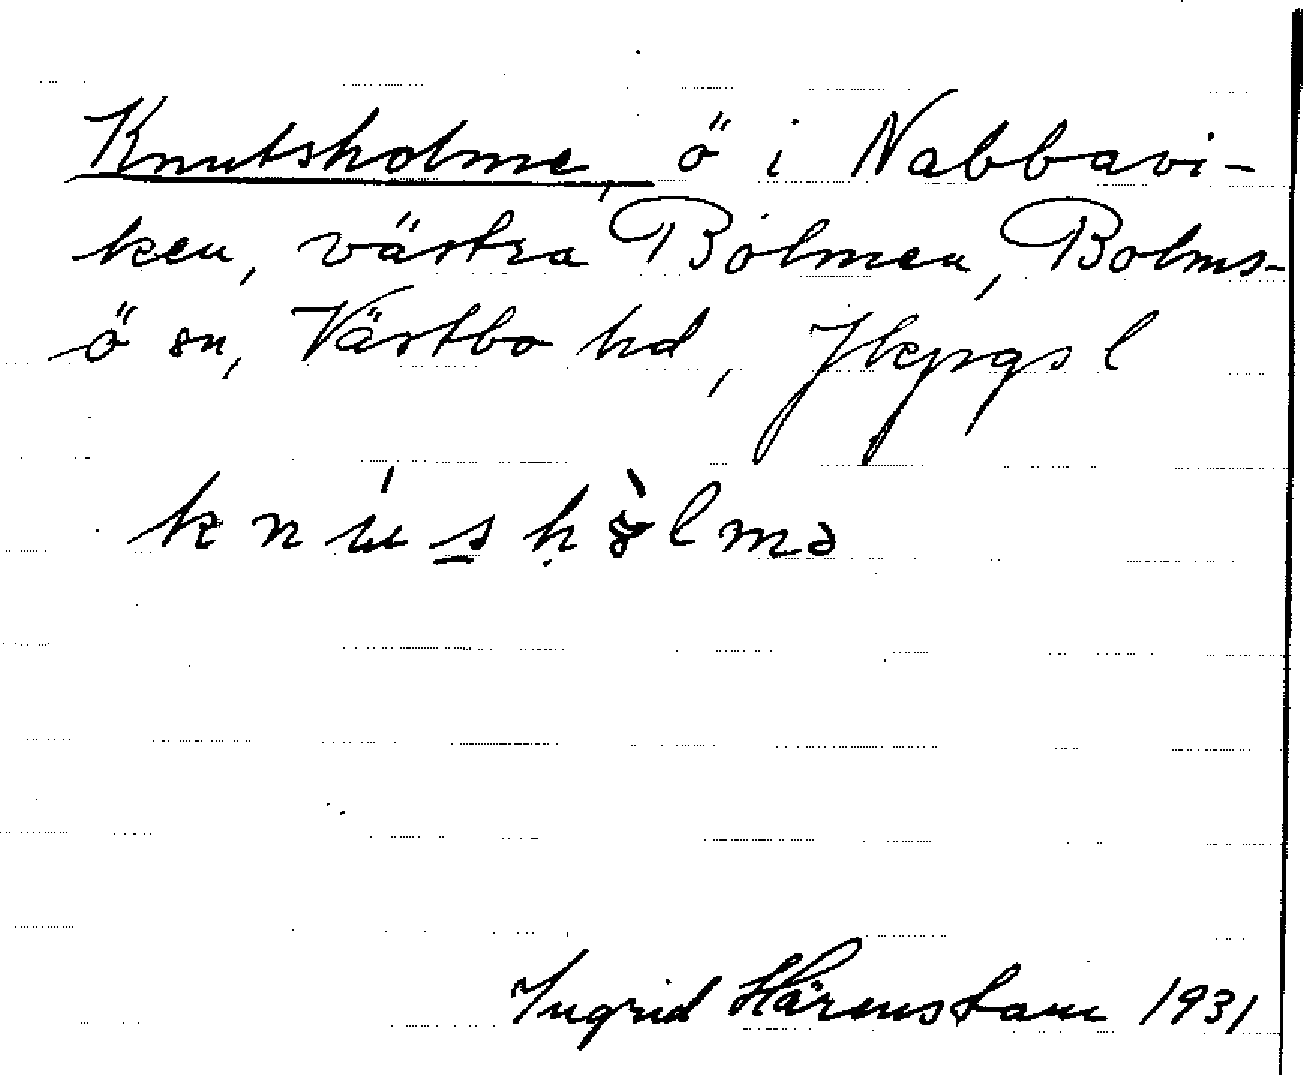 Knutsholme, ö i Nabbavi-
ken, västra Bolmen, Bolms-
ö sn, Västbo hd, Jkpgs l
knúshòlmə
Ingrid Härenstam 1931